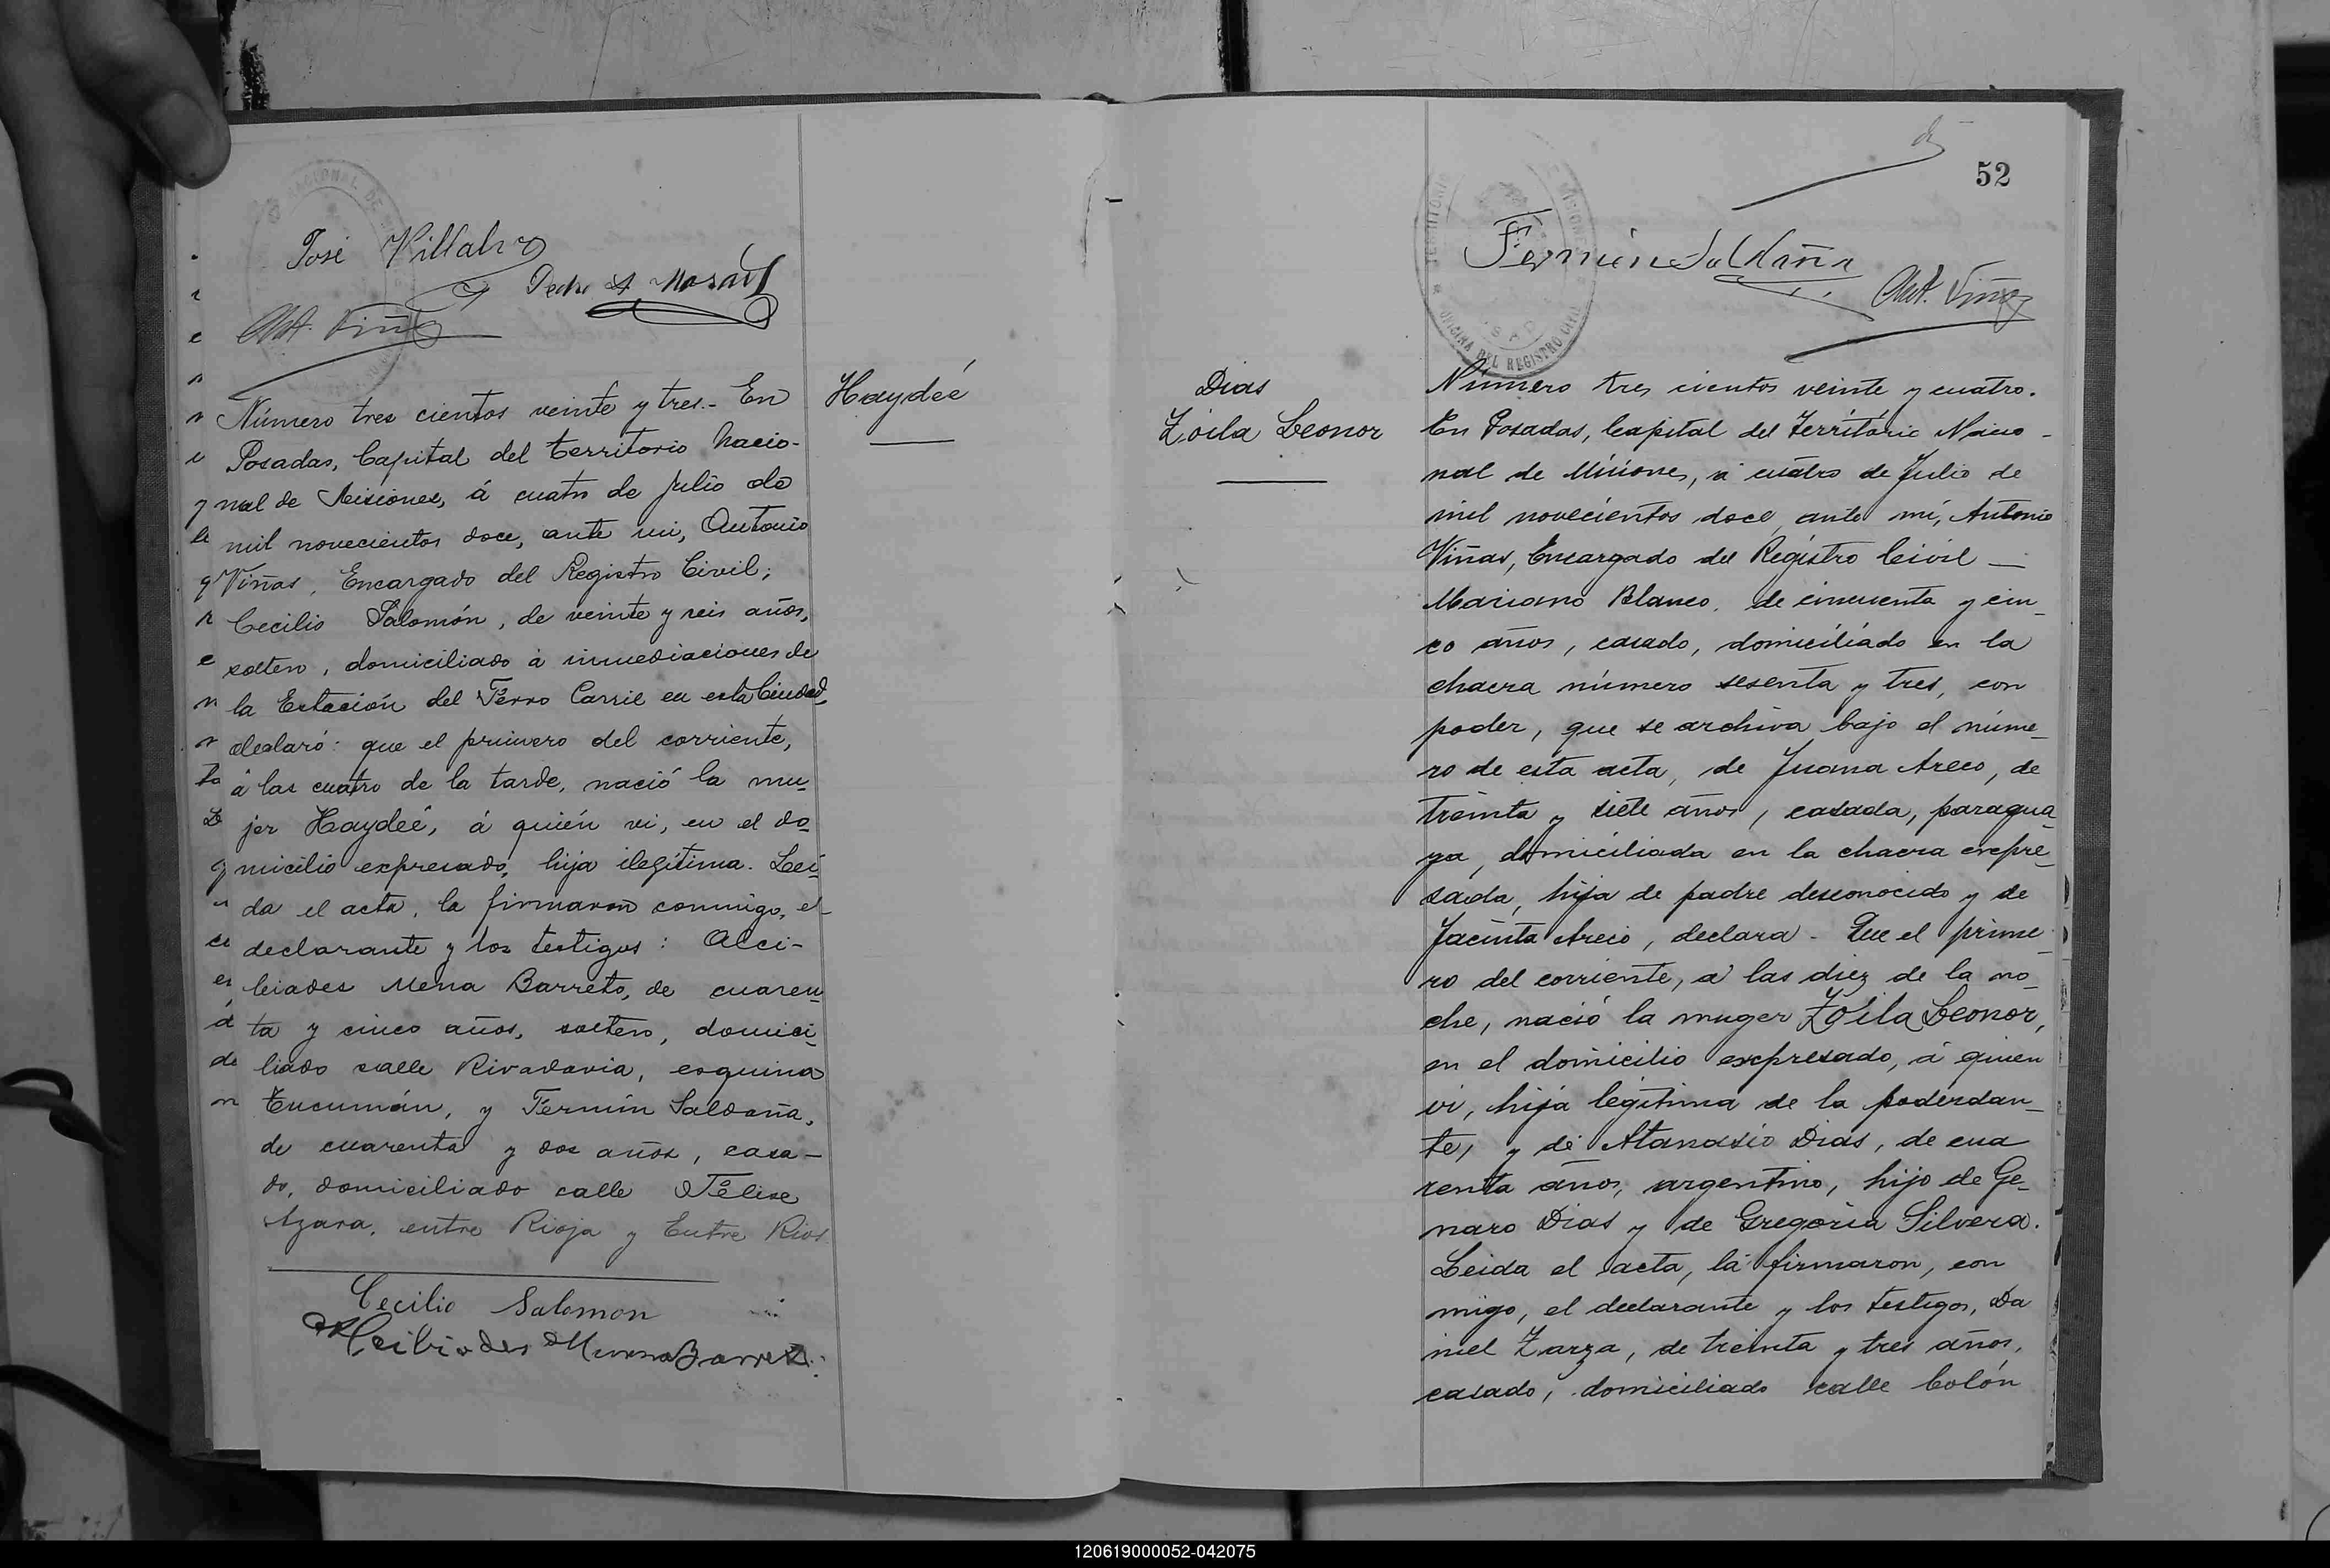 José Villalva
Pedro A
Ant. Viñas
Número tres cientos veinte y tres.- En
Posadas, Capital del territorio Nacio-
nal de Misiones, á cuatro de Julio de
mil novecientos doce, ante mi, Antonio
Viñas, Encargado del Registro Civil;
Cecilio Salomón, de veinte y seis años,
soltero, domiciliado á inmediaciones de
la Estación del Ferro Carril en esta Ciudad,
declaró: que el primero del corriente,
á las cuatro de la tarde, nació la mu-
jer Haydeé, á quién vi, en el do-
micilio expresado, hija ilegítima. Lei-
da el acta, la firmaron conmigo, el
declarante y los testigos: Alci-
biades Mena Barreto, de cuaren-
ta y cinco años, soltero, domici-
liado calle Rivadavia, esquina
Tucumán, y Fermín Saldaña,
de cuarenta y dos años, casa-
do, domiciliado calle Félix
Azara, entre Rioja y Entre Rios
Cecilio Salomon
Alcibiades Mena Barreto
Haydeé
52
Fermin Saldaña
Ant. Viñas
TERRITORIO MISIONES
OFICINA DEL REGISTRO CIVIL
Dias
Zóila Leonor
Número tres cientos veinte y cuatro.
En Posadas, Capital del Território Nacio-
nal de Misiones, á cuatro de Julio de
mil novecientos doce ante mí, Antonio
Viñas, Encargado del Registro Civil —
Mariano Blanco, de cincuenta y cin-
co años, casado, domiciliado en la
chacra número sesenta y tres, con
poder, que se archiva bajo el núme-
ro de esta acta, de Juana Areco, de
treinta y siete años, casada, paragua-
ya, domiciliada en la chacra expre-
sada, hija de padre desconocido y de
Jacinta Areco, declara. Que el prime-
ro del corriente, á las diez de la no-
che, nació la muger Zoila Leonor,
en el domicilio expresado, á quien
vi, hija legítima de la poderdan-
te, y de Atanasio Dias, de cua
renta años, argentino, hijo de Ge-
naro Dias y de Gregoria Silvera.
Leida el acta, la firmaron, con
migo, el declarante y los testigos, Da
niel Zarza, de treinta y tres años,
casado, domiciliado calle Colón
120619000052-042075